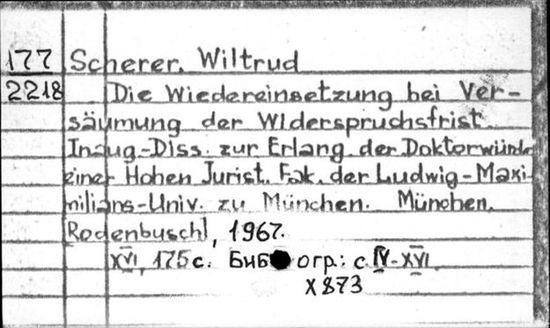 177 Scherer, Wiltrud
2218 Die Wiedereinsetzung bei Ver-
säumung der Widerspruchsfrist.
Inaug.-Diss. zur Erlang. der Doktorwürde
einer Hohen Jurist. Fak. der Ludwig-Maxi-
milians-Univ. zu München. München,
Rodenbusch, 1967.
XVI, 175 с. Библиогр.: с. IV-XVI
X873